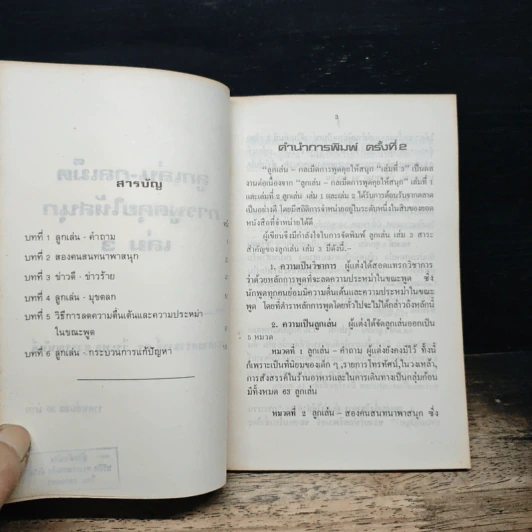 สารบัญ
บทที่ 1 ลูกเล่น - คำถาม
บทที่ 2 สองคนสนทนาพาสนุก
บทที่ 3 ข่าวดี - ข่าวร้าย
บทที่ 4 ลูกเล่น - มุขตลก
บทที่ 5 วิธีการลดความตื่นเต้นและความประหม่า
ในขณะพูด
บทที่ 6 ลูกเล่น - กระบวนการแก้ปัญหา
3
คำนำการพิมพ์ ครั้งที่ 2
"ลูกเล่น - กลเม็ดการพูดคุยให้สนุก "เล่มที่ 3" เป็นผล
งานต่อเนื่องจาก "ลูกเล่น - กลเม็ดการพูดคุยให้สนุก" เล่มที่ 1
และเล่มที่ 2 ลูกเล่น เล่ม 1 และเล่ม 2 ได้รับการต้อนรับจากตลาด
เป็นอย่างดี โดยมีสถิติการจำหน่ายอยู่ในระดับหนึ่งในสิบของยอด
หนังสือที่จำหน่ายได้
ผู้เขียนจึงมีกำลังใจในการจัดพิมพ์ ลูกเล่น เล่ม 3 สาระ
สำคัญของลูกเล่น เล่ม 3 มีดังนี้.-
1. ความเป็นวิชาการ ผู้แต่งได้สอดแทรกวิชาการ
ว่าด้วยหลักการพูดที่จะลดความประหม่าในขณะพูด ซึ่ง
นักพูดทุกคนย่อมมีความตื่นเต้นและความประหม่าในขณะ
พูด โดยที่ตำราหลักการพูดโดยทั่วไปจะไม่ได้กล่าวถึงหลักนี้
2. ความเป็นลูกเล่น ผู้แต่งได้จัดลูกเล่นออกเป็น
5 หมวด
หมวดที่ 1 ลูกเล่น - คำถาม ผู้แต่งยังคงมีไว้ ทั้งนี้
ก็เพราะเป็นที่นิยมของเด็ก ๆ ,รายการโทรทัศน์,ในวงเหล้า,
การสังสรรค์ในร้านอาหารและในการเดินทางเป็นกลุ่มก้อน
มีทั้งหมด 63 ลูกเล่น
หมวดที่ 2 ลูกเล่น - สองคนสนทนาพาสนุก ซึ่ง